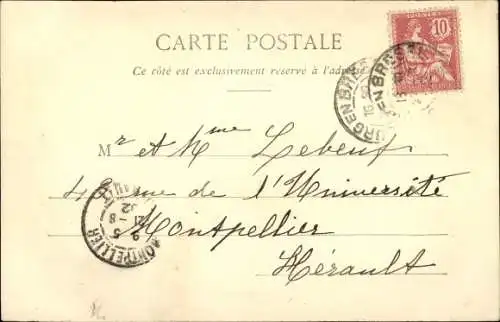 CARTE POSTALE
Ce côté est exclusivement réservé à l'adresse
POSTES
10
BOURG EN BRESSE
Mr et Mme Lebeuf
4 rue de l'Université
Montpellier
Hérault
MONTPELLIER